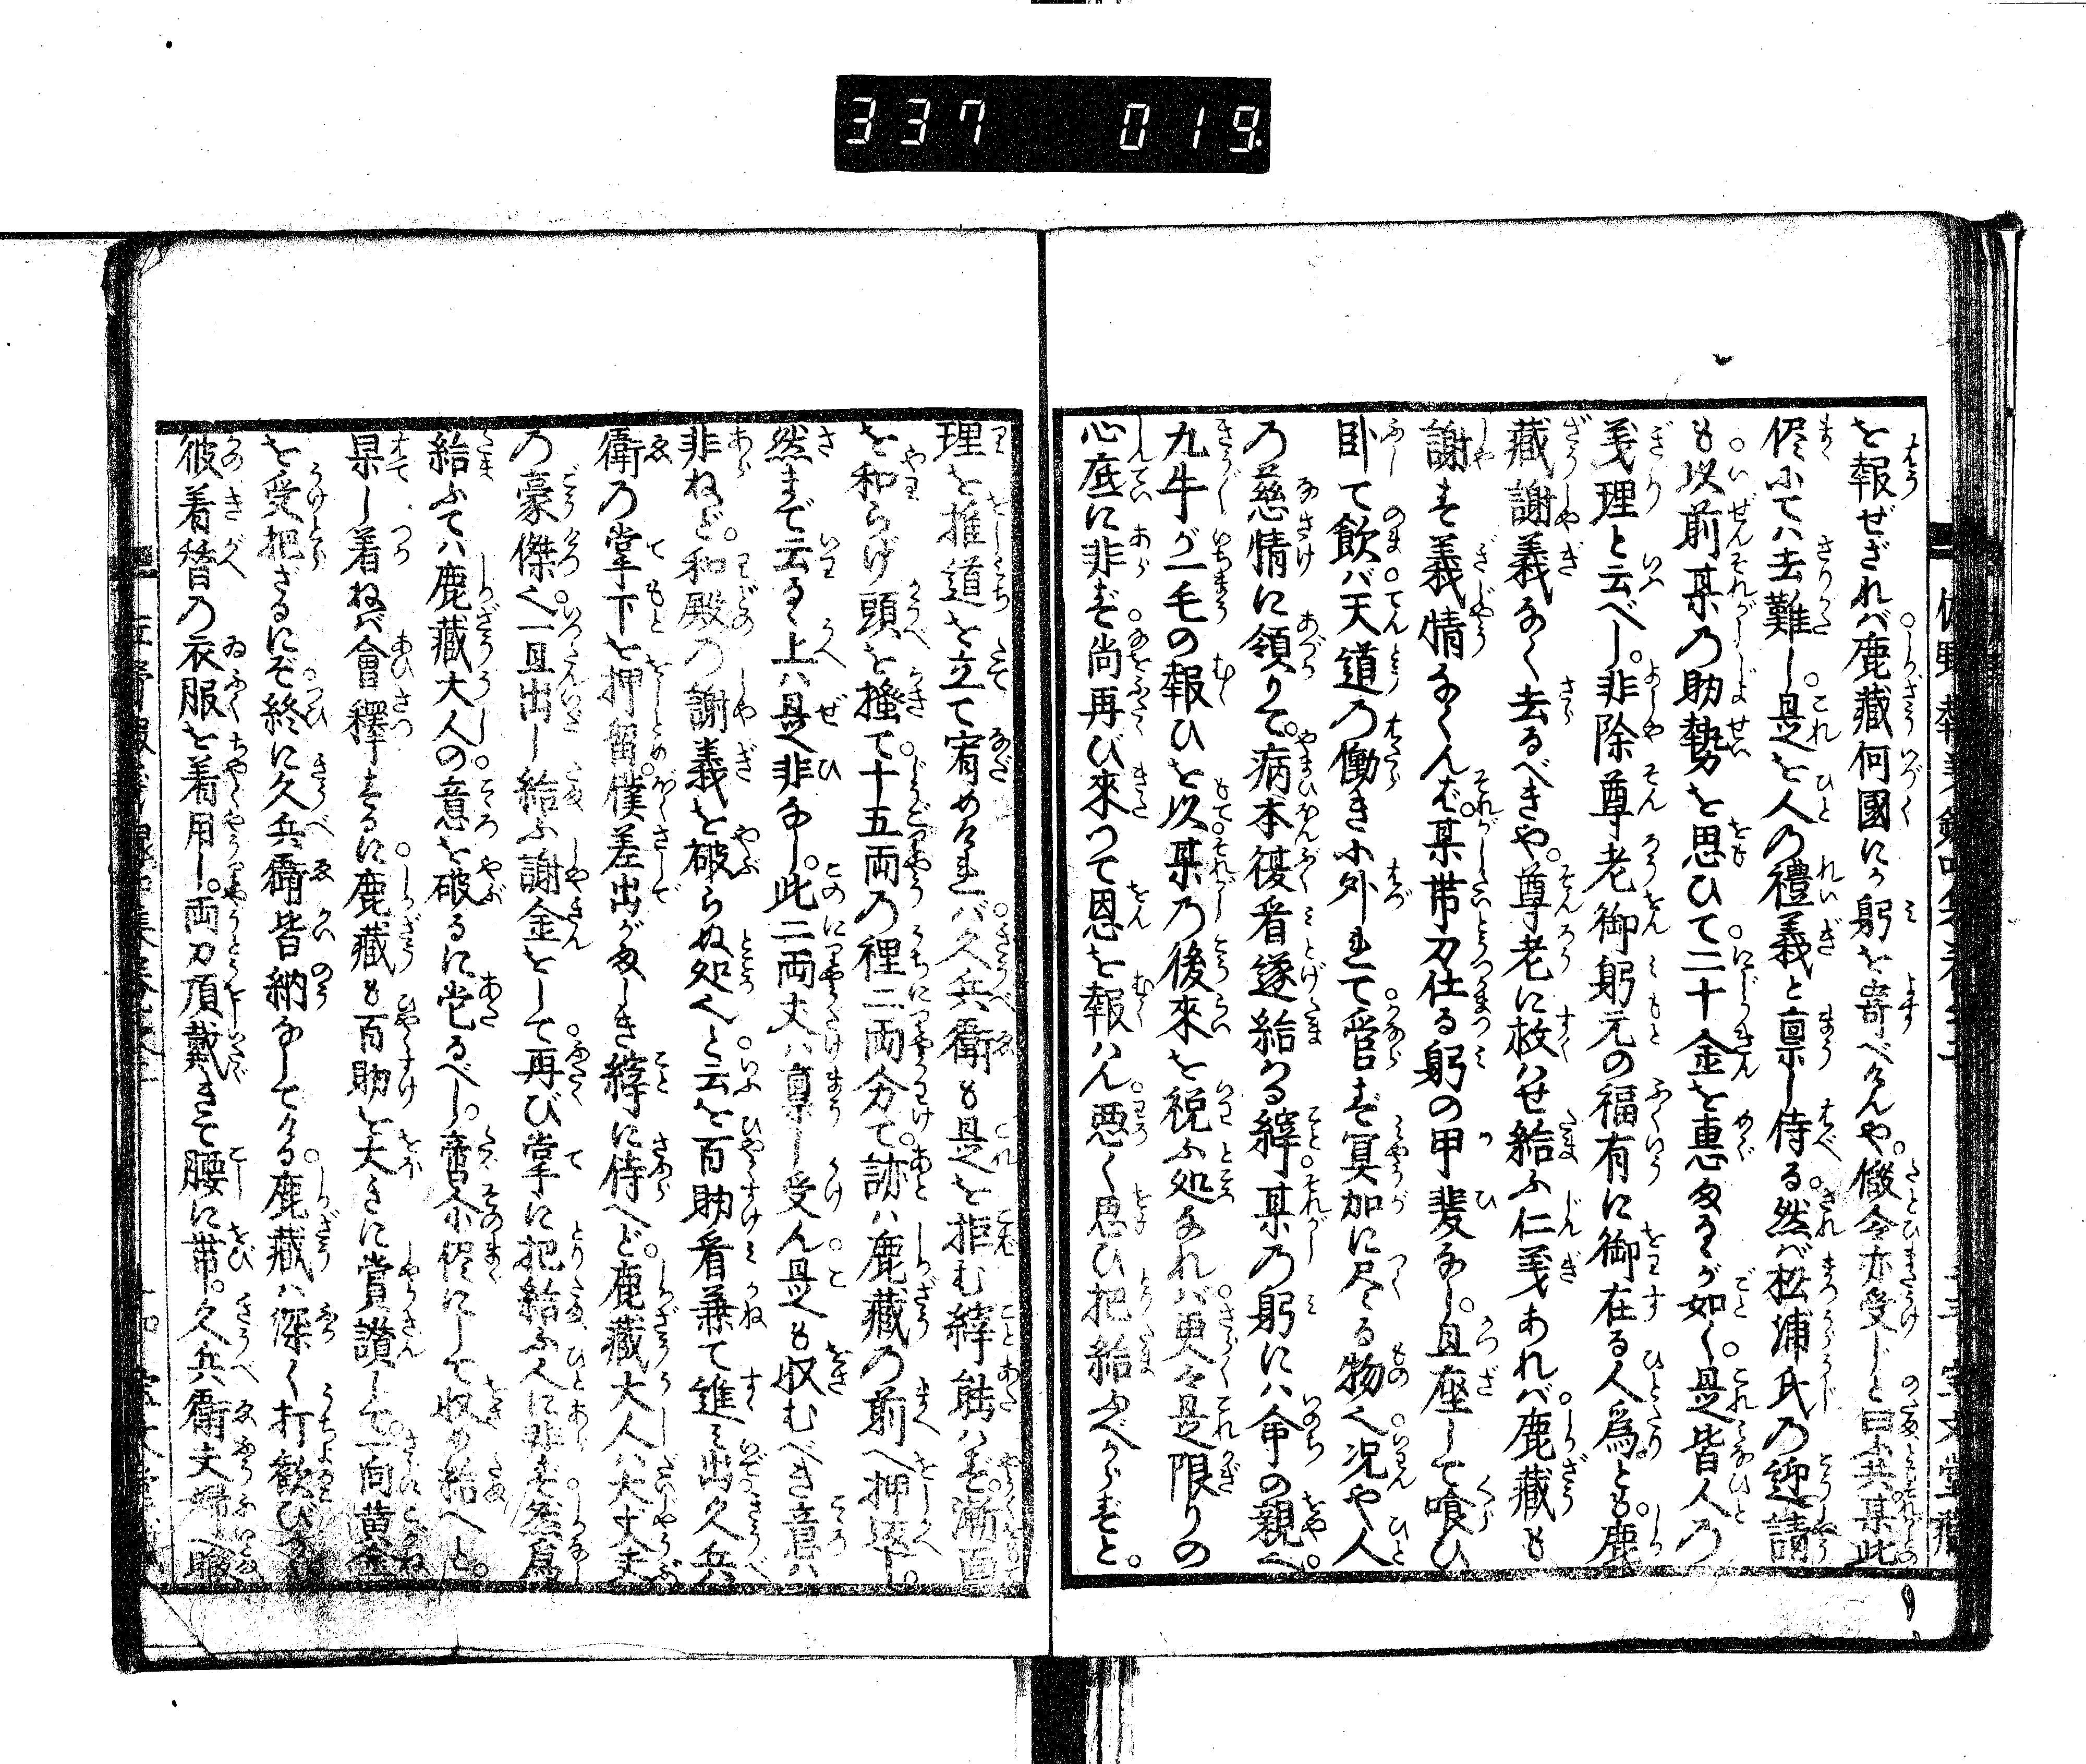 337 019
を報ぜざれバ鹿藏何國にか躬を寄べけんや。縱令亦受じと曰ふ共某此
侭ふてハ去難し是を人の禮義と禀し侍る。然バ松浦氏の迎請
も以前某の助勢を思ひて二十金を惠るゝが如く。是皆人の
義理と云べし。非除尊老御躬元の福有に御在る人爲とも。鹿
藏謝義なく去るべきや。尊老に救ハせ給ふ仁義あれバ。鹿藏も
謝す義情なくんバ。某帯刀仕る躬の甲斐なし。且座して喰ひ
卧て飲バ。天道の働きふ外れて。宜らず冥加に尽る物く。况や人
の慈情に領りて。病本復看遂給ける縡。某の躬にハ命の親く。
九牛が一毛の報ひを以。某の後來を祝ふ処なれバ。更々是限りの
心底に非ず。尚再び來つて恩を報ハん。悪く思ひ把給ふべからずと。
理を推道を立て宥めければ。久兵衛も是を拒む縡能ハず。漸面
を和らげ頭を搔て。十五両の裡二両分て。跡ハ鹿藏の前へ押返し。
然まで云るゝ上ハ是く非なし。此二両丈ハ禀し受ん。是も収むべき意ハ
非ねど。和殿の謝義を破らぬ処くと。云を百助看兼て進み出。久兵
衛の掌下を押留。僕差出がましき縡に侍へど。鹿藏大人ハ大丈夫
の豪傑く。一旦出し給ふ謝金をして。再び掌に把給ふ人に非ず。然爲
給ふてハ鹿藏大人の。意を破るに当るべし。啻尓侭にして収め給へと。
果し着ねバ會釋するに。鹿藏も百助を大きに賞讃して。一向黄金
を受把ざるにぞ。終に久兵衛皆納なしてける。鹿藏ハ深く打歓びつゝ
彼着替の衣服を着用し。両刀頂戴きて腰に帯。久兵衛夫婦へ暇